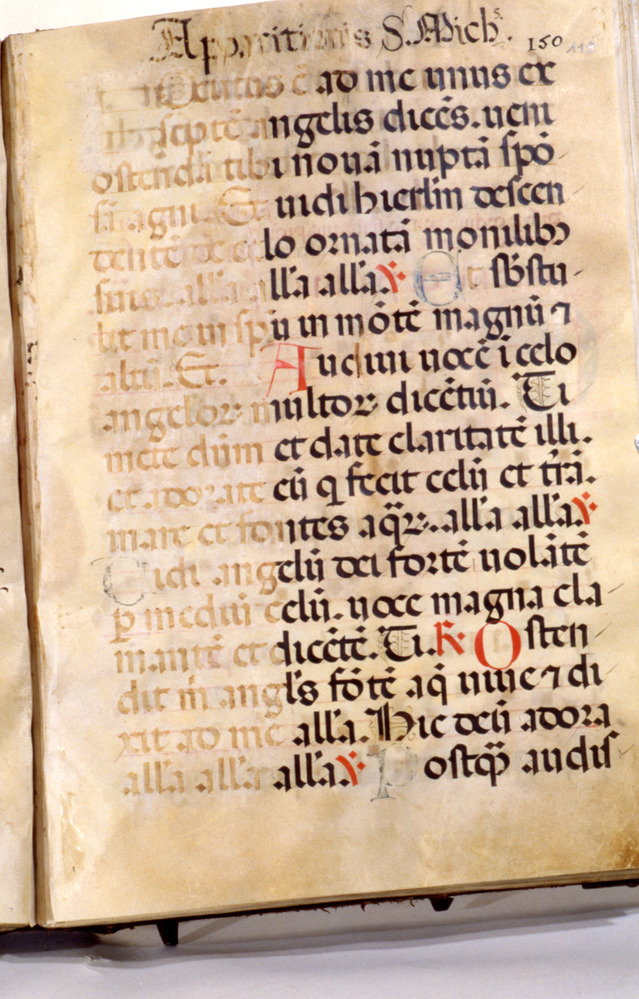 Apparitionis S. Mich.ˢ 150
ad me unus ex
septē angelis dicēs. ueni
ostendā tibi nouā nuptā spō
sā agni. Et uidi hierlm̄ descen
dentē de celo ornatā monilibꝫ
suis. all'a all'a all'a. ℣. Et sb̄stu
lit me in spū in mōtē magnū ⁊
altū. Et. Audiui uocē ī celo
angeloꝝ multoꝝ dicētiū. Ti
mete dn̄m et date claritatē illi.
et adorate eū q̄ fecit celū et trā.
mare et fontes aqꝝ. all'a all'a. ℣.
Uidi angelū dei fortē uolātē
ꝑ mediū celū. uoce magna cla
mantē et dicētē. Ti. ℟. Osten
dit m̄ angl's fōtē aq̄ uiue ⁊ di
xit ad me all'a. Hic deū adora
all'a all'a all'a. ℣. Postqꝫ̄ audis